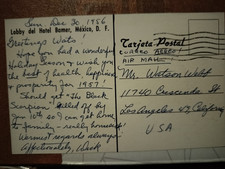 San. Dec 20, 1986
Lobby del Hotel Bamer, México, D. F.
Greetings Wats -
Hope you had a wonderful
Holiday Season & wish you
the best of health, happiness
& prosperity for 1987!
Should get "The Black
Scorpion" killed off by
Jan 10th so I can get home
to family - really homesick
Warmest regards always
Affectionately, Dick
Tarjeta Postal
CORREO AEREO
AIR MAIL
Mr. Watson Webb
11740 Crescenda St
Los Angeles 49, California
USA